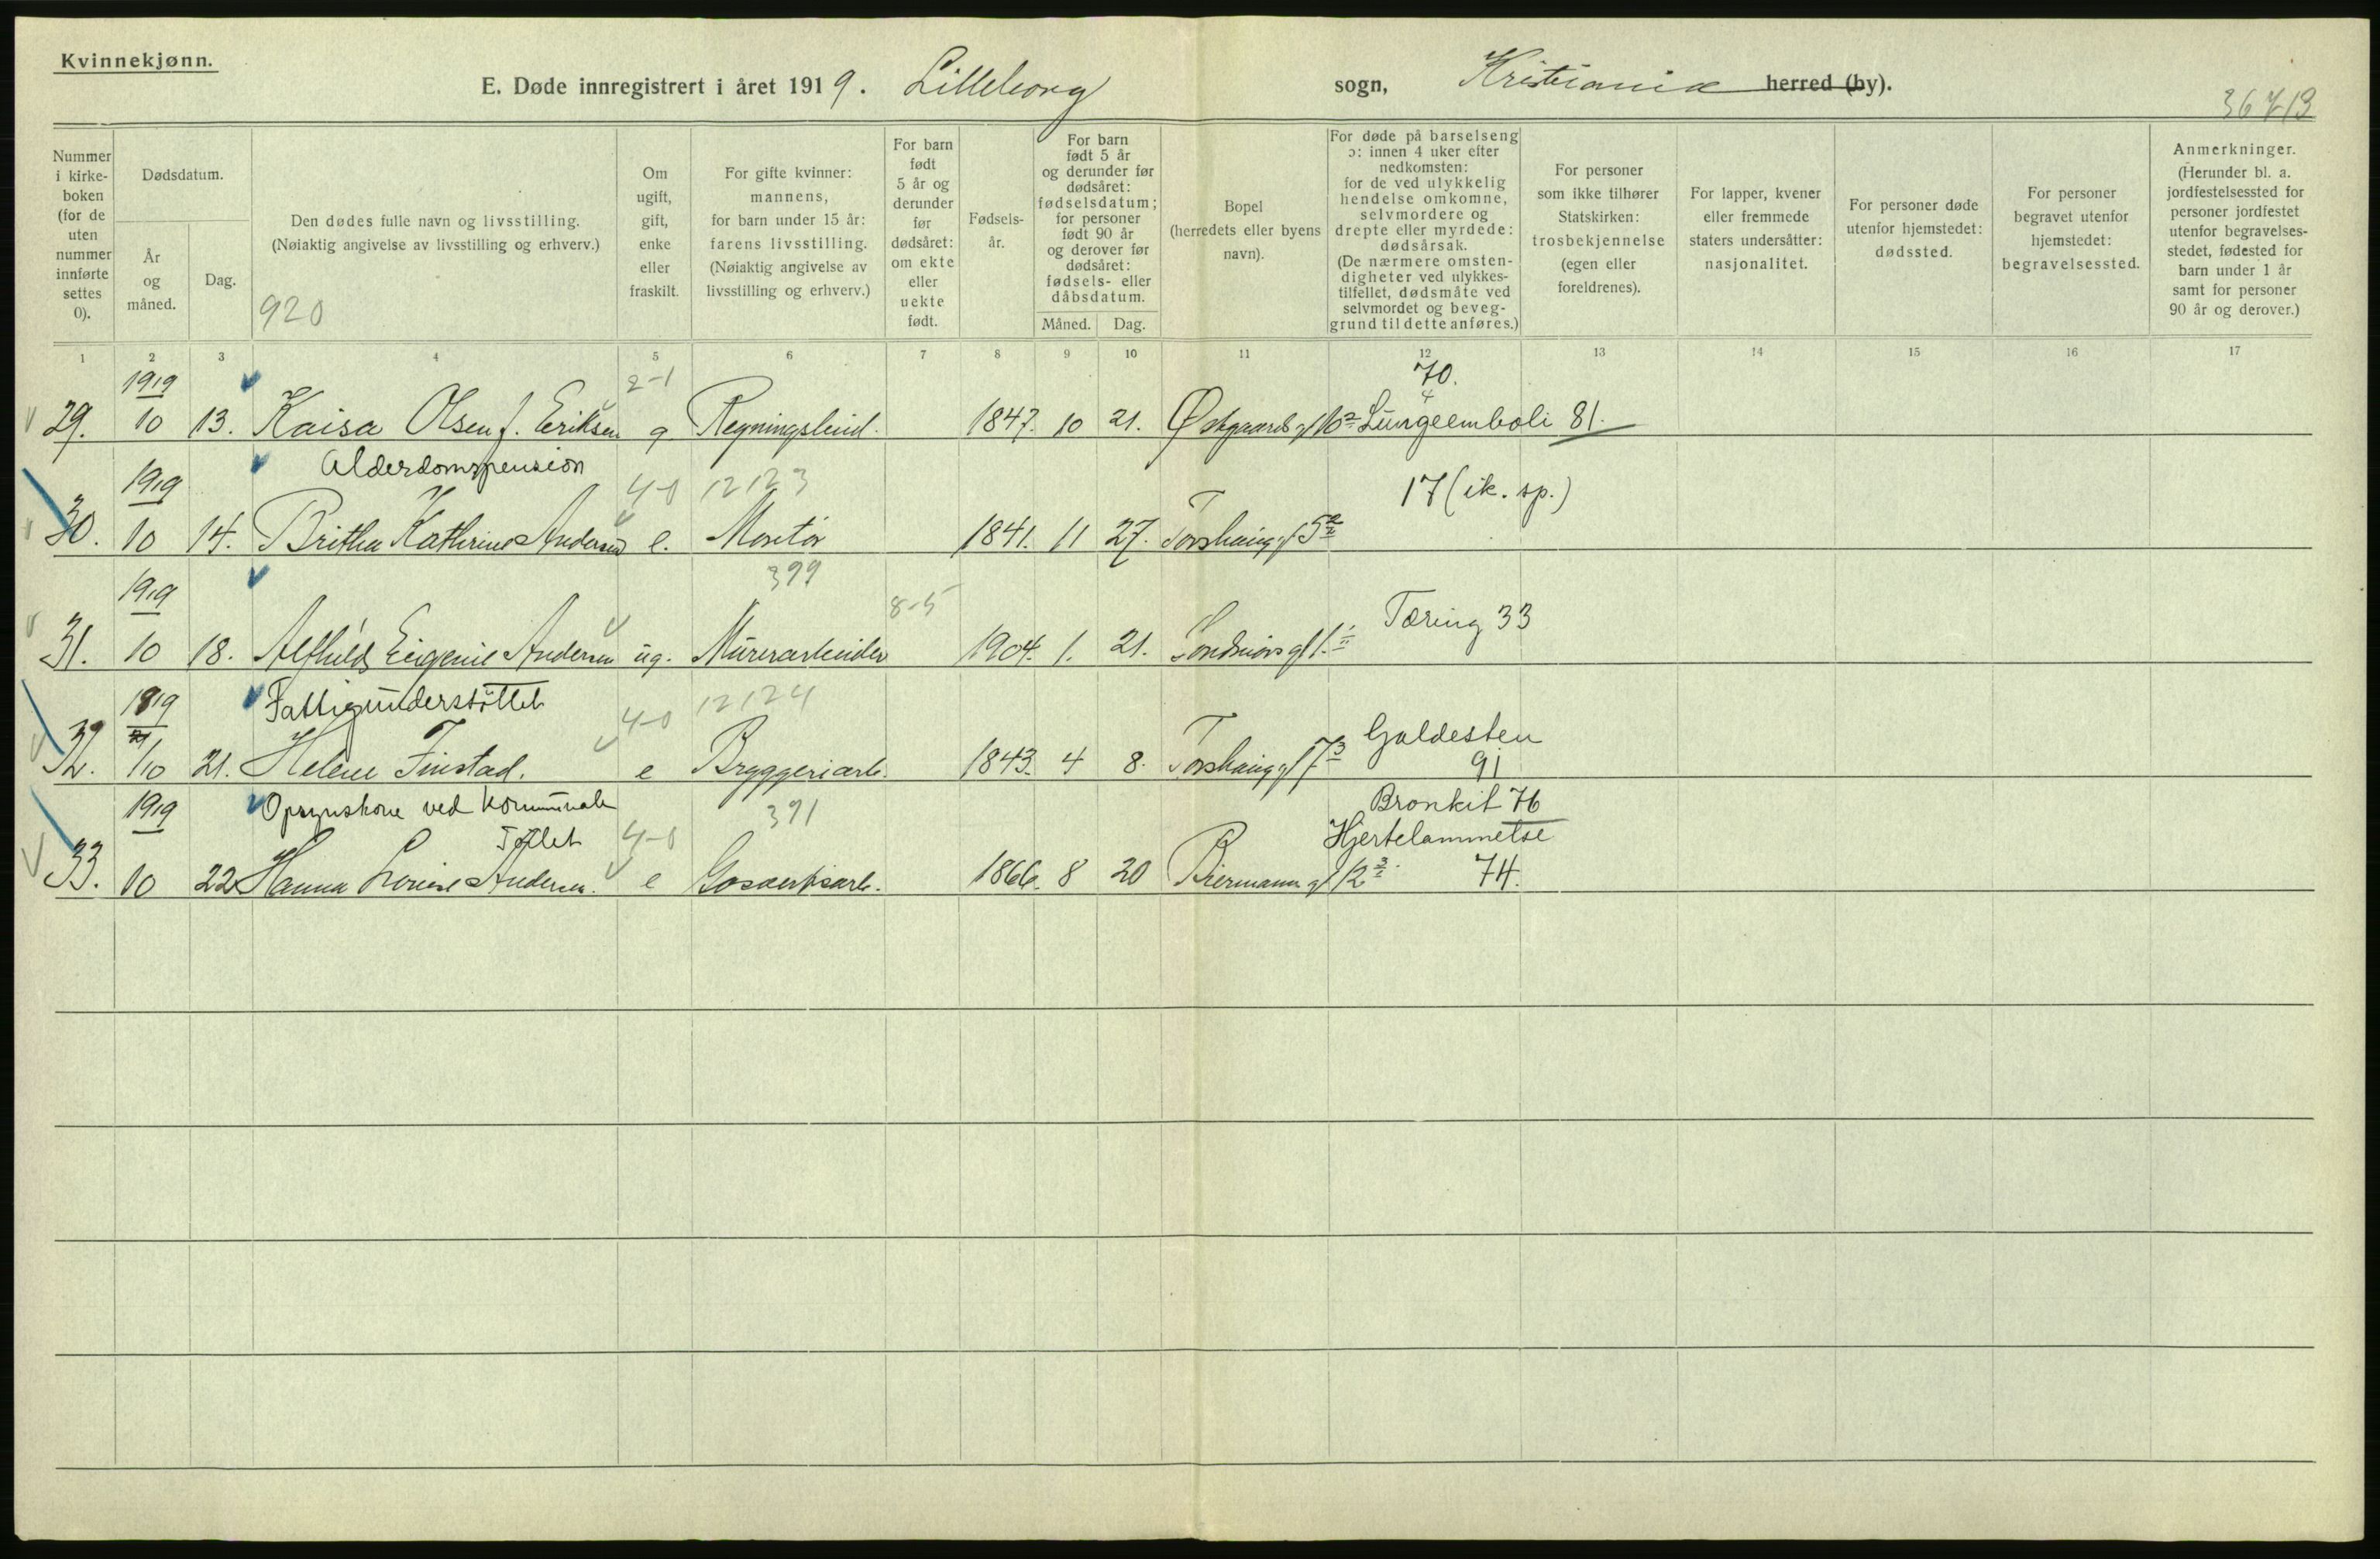 Kvinnekjønn.
E. Døde innregistrert i året 1919. Lilleborg sogn, Kristiania herred (by).
36713
Nummer i kirkeboken (for de uten nummer innførte settes 0).
Dødsdatum.
År og måned.
Dag.
Den dødes fulle navn og livsstilling.
(Nøiaktig angivelse av livsstilling og erhverv.)
920
Om ugift, gift, enke eller fraskilt.
For gifte kvinner: mannens, for barn under 15 år: farens livsstilling.
(Nøiaktig angivelse av livsstilling og erhverv.)
For barn født 5 år og derunder før dødsåret: om ekte eller uekte født.
Fødselsår.
For barn født 5 år og derunder før dødsåret: fødselsdatum; for personer født 90 år og derover før dødsåret: fødsels- eller dåbsdatum.
Måned. Dag.
Bopel (herredets eller byens navn).
For døde på barselseng ɔ: innen 4 uker efter nedkomsten: for de ved ulykkelig hendelse omkomne, selvmordere og drepte eller myrdede: dødsårsak.
(De nærmere omstendigheter ved ulykkestilfellet, dødsmåte ved selvmordet og beveggrund til dette anføres.)
For personer som ikke tilhører Statskirken: trosbekjennelse (egen eller foreldrenes).
For lapper, kvener eller fremmede staters undersåtter: nasjonalitet.
For personer døde utenfor hjemstedet: dødssted.
For personer begravet utenfor hjemstedet: begravelsessted.
Anmerkninger.
(Herunder bl. a. jordfestelsessted for personer jordfestet utenfor begravelsesstedet, fødested for barn under 1 år samt for personer 90 år og derover.)
1 2 3 4 5 6 7 8 9 10 11 12 13 14 15 16 17
1919 2-1 70.
29. 10 13. Kaisa Olsen f. Eriksen g Regningsbud. 1847. 10 21. Østgaards gt Lungeemboli 81.
1919 Alderdomspension 4-0 12123 17 (ik. sp.)
30. 10 14. Britha Kathrine Andersen e. Montør 1841. 11 27. Torshaug gt 5
1919 399 8-5 Tæring 33
31. 10 18. Alfhild Eugenie Andersen ug. Murerarbeider 1904. 1. 21. 
1919 Fattigunderstöttet 4-0 12124 Galdesten
32. 10 21. Helene Finstad. e Bryggeriarb. 1843. 4 8. Torshaug gt 7 91
1919 Opsynskone ved kommunale 391 Bronkit 76
Toilet 4-0 Hjertelammelse
33. 10 22 Hanna Lovise Andersen. e Gasverksarb. 1866. 8 20 Biermanns gt 12 74.